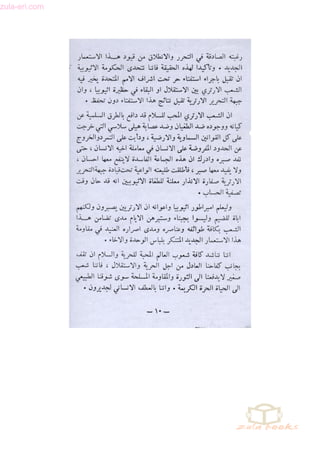 zula-eri.com
رغبته الصادقة في التحرر والانطلاق من قيود هـــذا الاستعمار
الجديد . وتأكيدا لهذه الحقيقة فاننا نتحدى الحكومة الاثيوبية
ان تقبل باجراء استفتاء حر تحت اشراف الامم المتحدة يخير فيه
الشعب الارتري بين الاستقلال او البقاء في حظيرة اثيوبيا ، وان
جبهة التحرير الارترية تقبل نتائج هذا الاستفتاء دون تحفظ .
ان الشعب الارتري المحب للسلام قد دافع بالطرق السلمية عن
كيانه ووجوده ضد الطغيان وضد عصابة هيلى سلاسي التي خرجت
على كل القوانين السماوية والارضية ، ودأبت على التمرد والخروج
عن الحدود المفروضة على الانسان في معاملة اخيه الانسان ، حتى
نفد صبره وادرك ان هذه الجماعة الفاسدة لا ينفع معها احسان ،
ولا يفيد معها صبر ، فأطلقت طليعته الواعية تحت قيادة جبهة التحرير
الارترية صفارة الانذار معلنة للطغاة الاثيوبيين انه قد حان وقت
تصفية الحساب .
وليعلم امبراطور اثيوبيا واعوانه ان الارتريين يصبرون ولكنهم
اباة للضيم وليسوا بجبناء وستبرهن الايام مدى تضامن هـــذا
الشعب بكافة طوائفه وعناصره ومدى اصراره العنيد في مقاومة
هذا الاستعمار الجديد المتنكر بلباس الوحدة والاخاء .
اننا نناشد كافة شعوب العالم المحبة للحرية والسلام ان تقف
بجانب كفاحنا العادل من اجل الحرية والاستقلال ، فاننا شعب
صغير لا يدفعنا الى الثورة والمقاومة المسلحة سوى شوقنا الطبيعي
الى الحياة الحرة الكريمة . واننا بالعطف الانساني لجديرون .
— ١٥ —
zula books